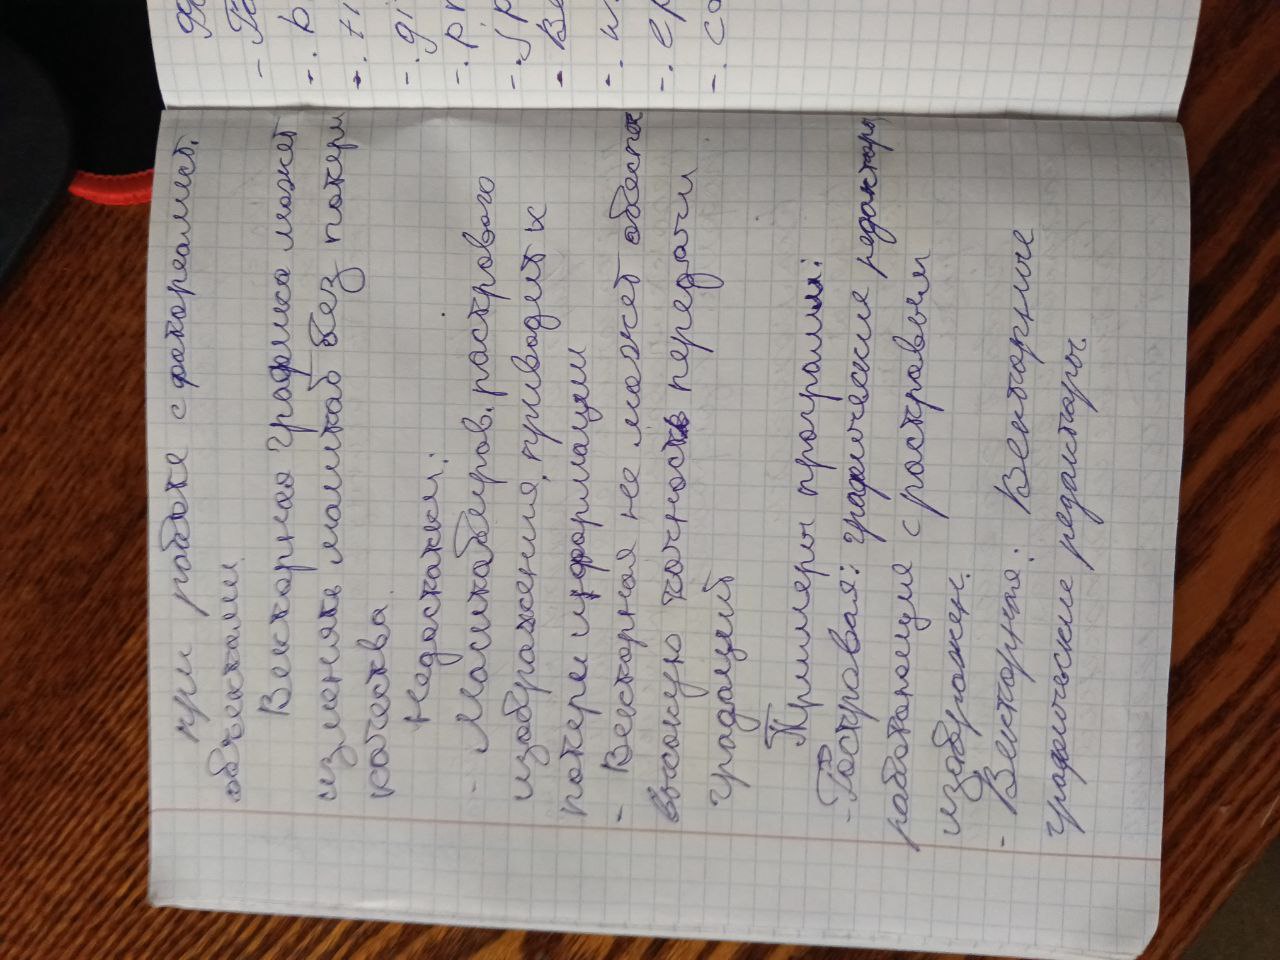 при работе с фотореалист.
объектами.
Векторная графика может
изменять масштаб без потери
качества.
Недостатки:
- Масштабиров. растрового
изображения приводит к
потери информации
- Векторная не может обеспеч
высокую точность передачи
градаций
Примеры программ:
- Растровая: графические редакторы
работающие с растровым
изображен.
- Векторная: Векторные
графические редакторы.
- .b
- .ti
- .gi
- .pn
- Ве
- .w
- .ep